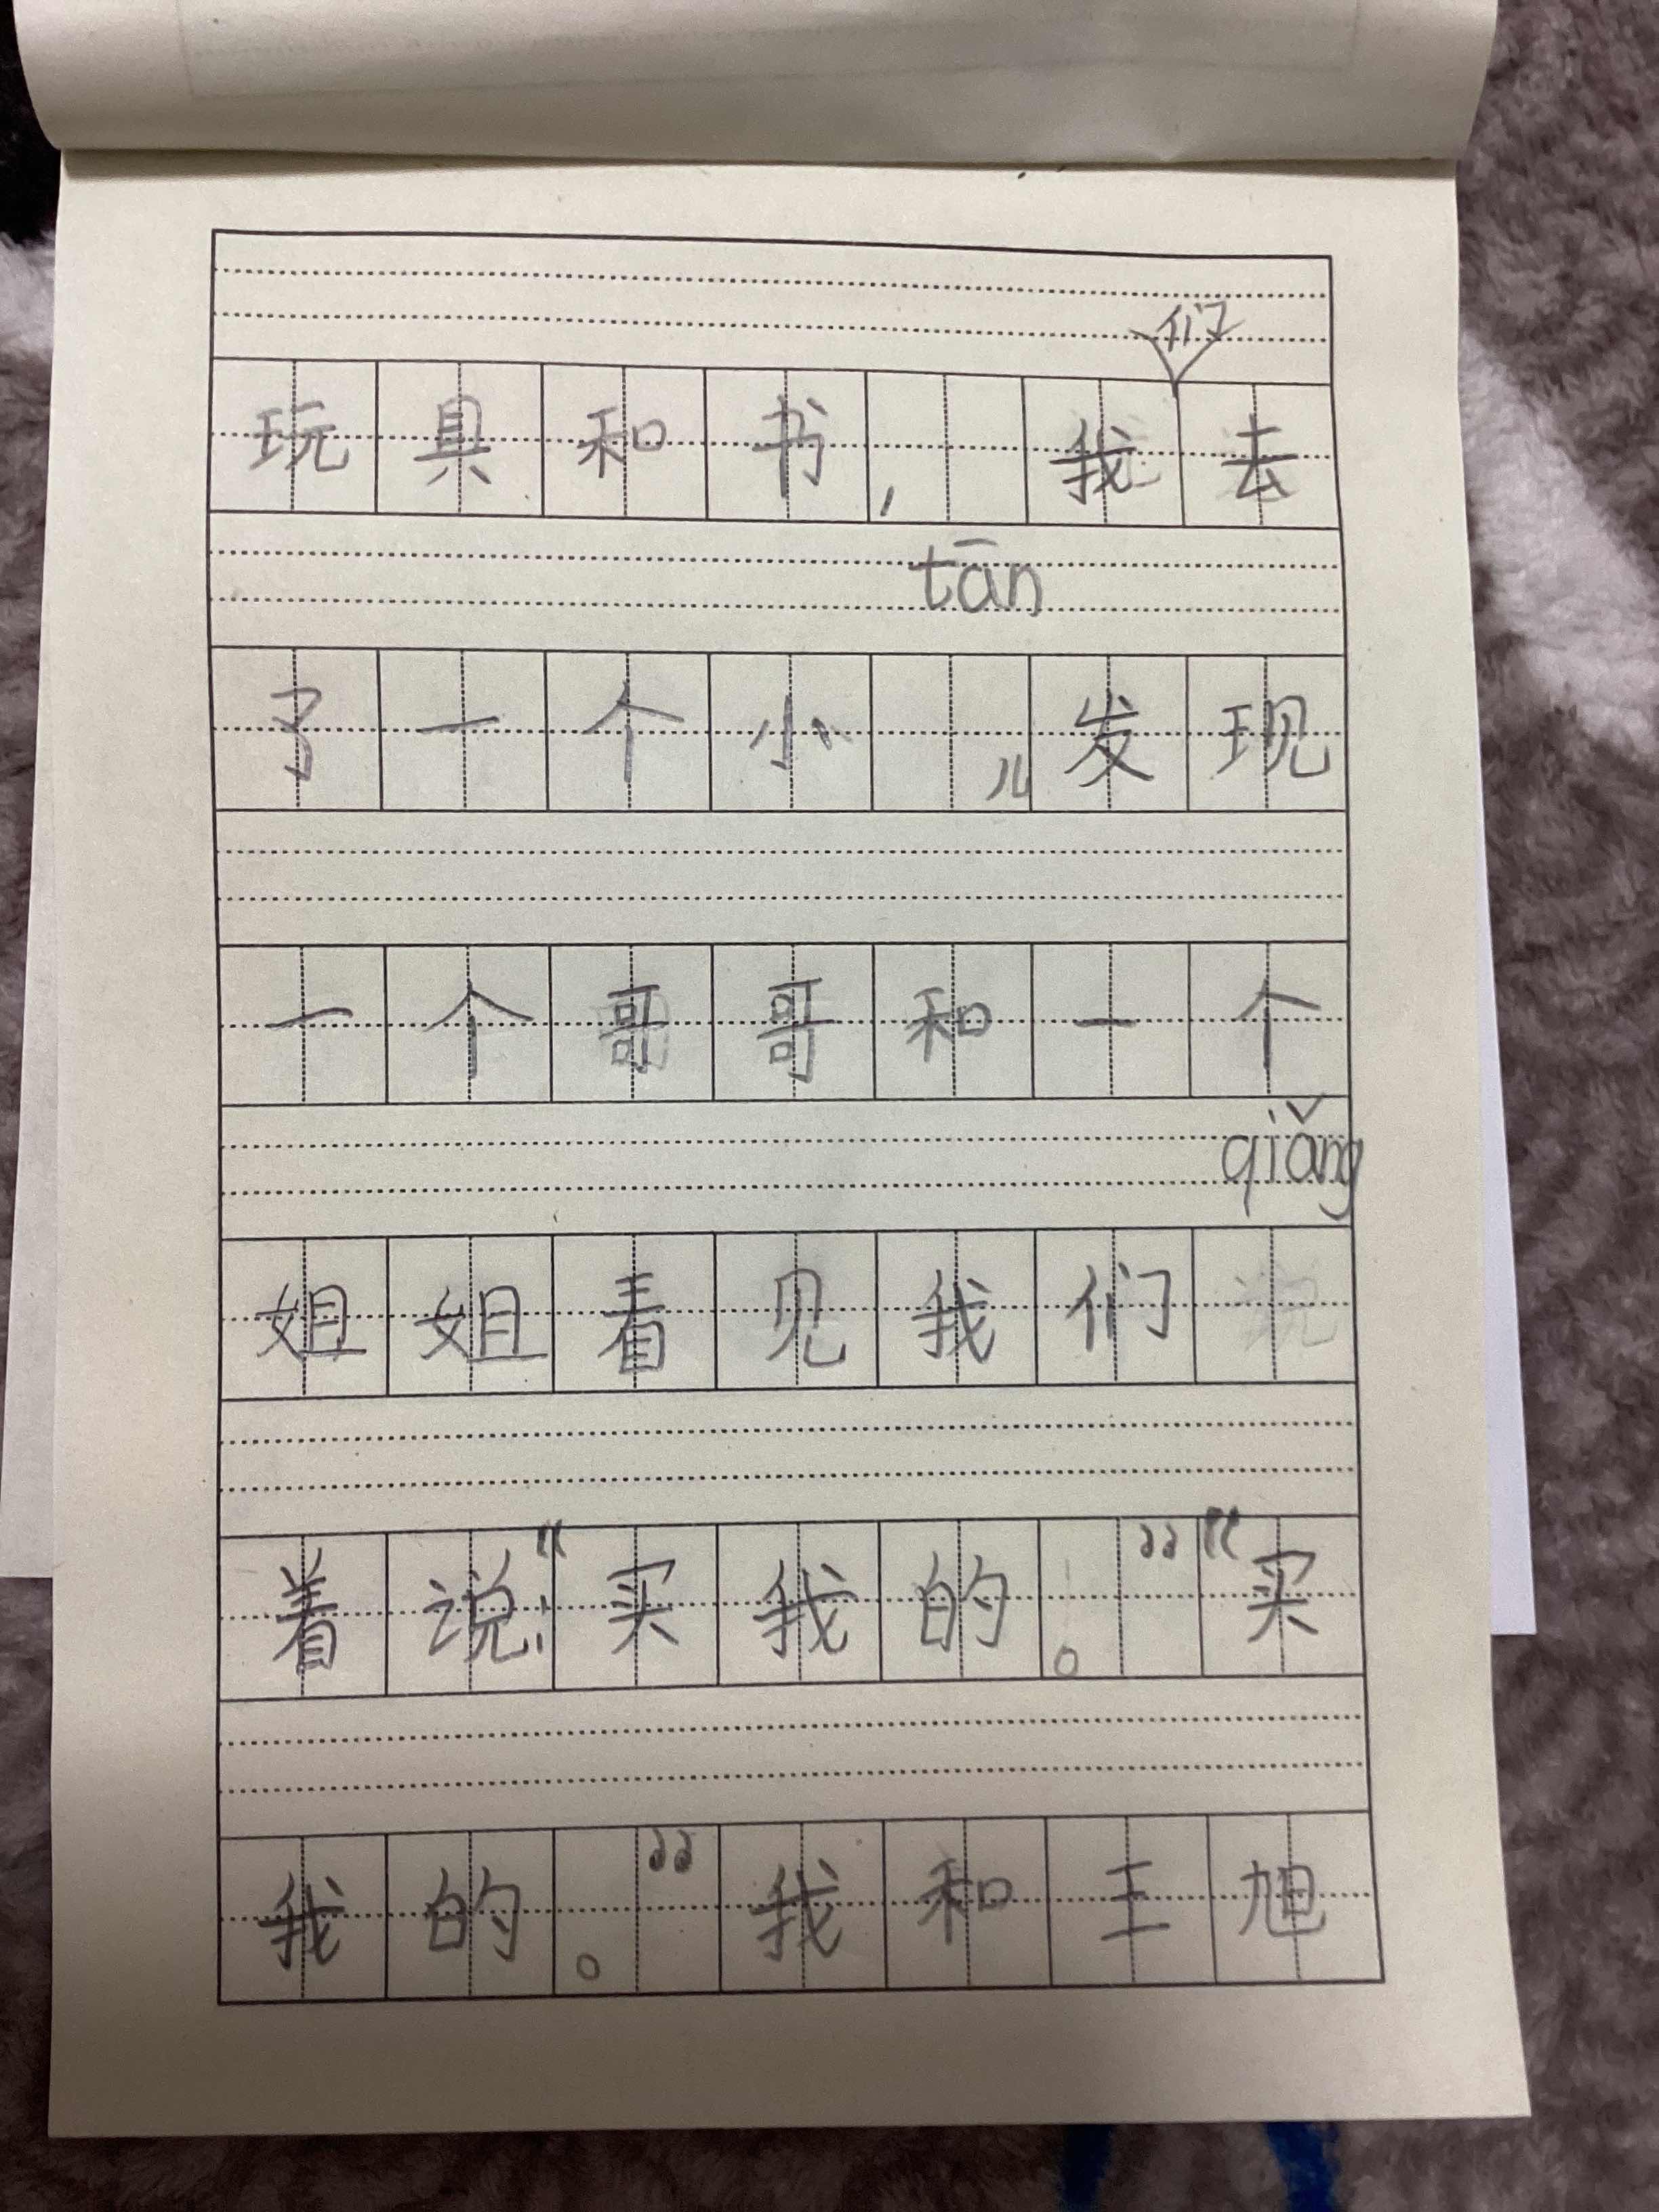 们
玩具和书，我去
tān
了一个小儿发现
一个哥哥和一个
qiǎng
姐姐看见我们
着说：“买我的。”“买
我的。”我和王旭